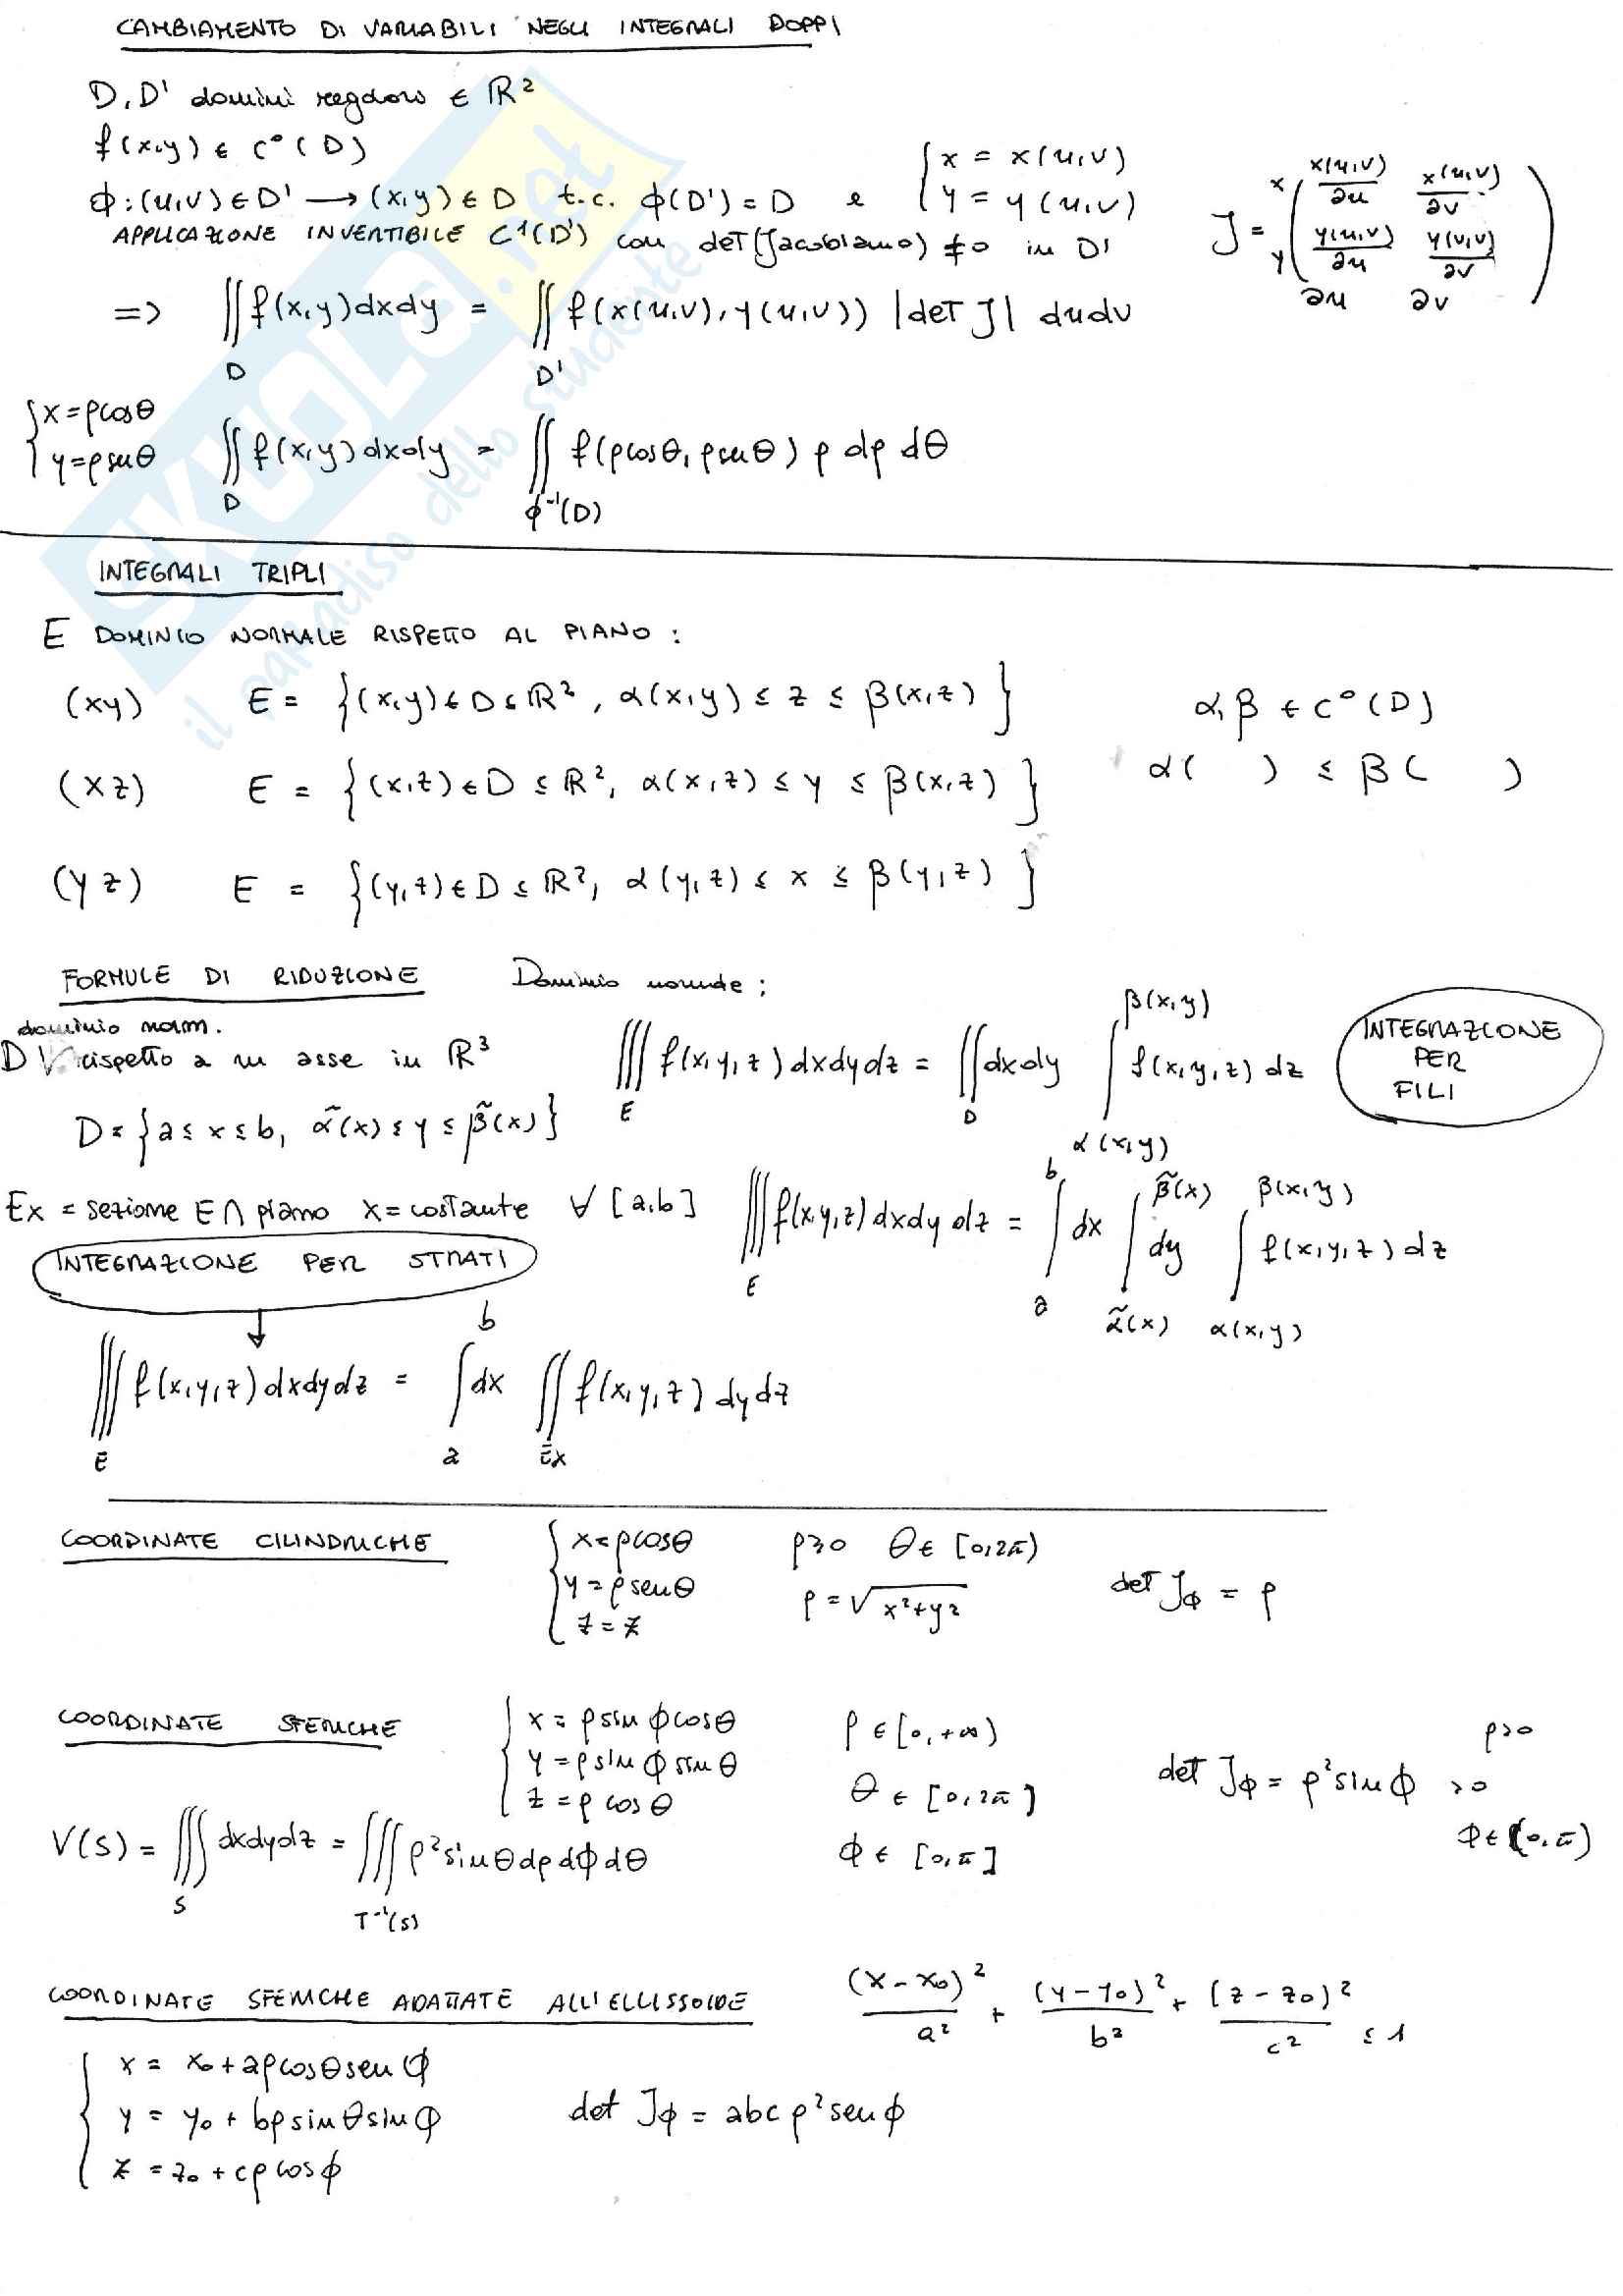 CAMBIAMENTO DI VARIABILI NEGLI INTEGRALI DOPPI
D, D' domini regolari ∈ ℝ²
f(x,y) ∈ C°(D)
ϕ: (u,v) ∈ D' → (x,y) ∈ D t.c. ϕ(D') = D e { x = x(u,v) y = y(u,v)
APPLICAZIONE INVERTIBILE C¹(D') con det(Jacobiano) ≠ 0 in D'
J = x y ( x(u,v)/∂u x(u,v)/∂v y(u,v)/∂u y(v,v)/∂v ) ∂u ∂v
=> ∬_D f(x,y) dxdy = ∬_D' f(x(u,v), y(u,v)) |det J| dudv
{ x = ρcosθ y = ρsenθ ∬_D f(x,y) dxdy = ∬_ϕ⁻¹(D) f(ρcosθ, ρsenθ) ρ dρ dθ
INTEGRALI TRIPLI
E DOMINIO NORMALE RISPETTO AL PIANO :
(xy) E = {(x,y) ∈ D ⊆ ℝ², α(x,y) ≤ z ≤ β(x,z)} α, β ∈ C°(D)
(xz) E = {(x,z) ∈ D ⊆ ℝ², α(x,z) ≤ y ≤ β(x,z)} α( ) ≤ β( )
(yz) E = {(y,z) ∈ D ⊆ ℝ², α(y,z) ≤ x ≤ β(y,z)}
FORMULE DI RIDUZIONE Dominio normale :
dominio norm.
D rispetto a un asse in ℝ³ ∭_E f(x,y,z) dxdydz = ∬_D dxdy ∫_α(x,y)^β(x,y) f(x,y,z) dz INTEGRAZIONE PER FILI
D = {a ≤ x ≤ b, α̃(x) ≤ y ≤ β̃(x)}
Ex = sezione E ∩ piano x = costante ∀ [a,b] ∭_E f(x,y,z) dxdy dz = ∫_a^b dx ∫_α̃(x)^β̃(x) dy ∫_α(x,y)^β(x,y) f(x,y,z) dz
INTEGRAZIONE PER STRATI
∭_E f(x,y,z) dxdydz = ∫_a^b dx ∬_Ex f(x,y,z) dydz
COORDINATE CILINDRICHE { x = ρcosθ y = ρsenθ z = z ρ≥0 θ ∈ [0,2π) ρ = √x²+y² det Jϕ = ρ
COORDINATE SFERICHE { x = ρsin ϕcosθ y = ρsin ϕ sin θ z = ρ cos θ
ρ ∈ [0,+∞) θ ∈ [0,2π] ϕ ∈ [0,π]
det Jϕ = ρ²sin ϕ >0 ρ>0 ϕ ∈ (0,π)
V(S) = ∭_S dxdydz = ∭_T⁻¹(S) ρ²sinθ dρ dϕ dθ
COORDINATE SFERICHE ADATTATE ALL'ELLISSOIDE (x-x₀)²/a² + (y-y₀)²/b² + (z-z₀)²/c² ≤ 1
{ x = x₀ + aρcosθsenϕ
y = y₀ + bρsinθsinϕ det Jϕ = abc ρ²senϕ
z = z₀ + cρcosϕ
SKUOLA.net
il paradiso dello studente